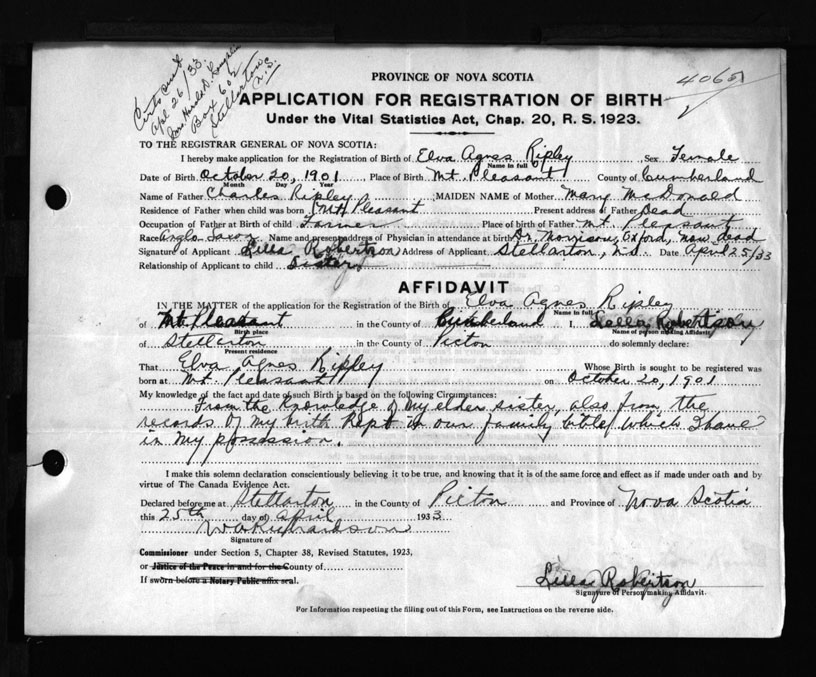 Apl 26/33
Box 602
Stellarton
N.S.
4065
PROVINCE OF NOVA SCOTIA
APPLICATION FOR REGISTRATION OF BIRTH
Under the Vital Statistics Act, Chap. 20, R. S. 1923.
TO THE REGISTRAR GENERAL OF NOVA SCOTIA:
I hereby make application for the Registration of Birth of Elva Agnes Ripley Sex Female
Name in full
Date of Birth October 20, 1901 Place of Birth Mt. Pleasant County of Cumberland
Month Day Year
Name of Father Charles Ripley MAIDEN NAME of Mother Mary McDonald
Residence of Father when child was born Mt Pleasant Present address of Father Dead
Occupation of Father at Birth of child Farmer Place of birth of Father Mt. Pleasant
Race Anglo Saxon Name and present address of Physician in attendance at birth Dr. Morrison, Oxford, now dead
Signature of Applicant Lilla Robertson Address of Applicant Stellarton, N.S. Date April 25/33
Relationship of Applicant to child Sister
AFFIDAVIT
IN THE MATTER of the application for the Registration of the Birth of Elva Agnes Ripley
Name in full
of Mt. Pleasant in the County of Cumberland I, Lella Robertson
Birth place Name of person making Affidavit
of Stellarton in the County of Picton do solemnly declare:
Present residence
That Elva Agnes Ripley Whose Birth is sought to be registered was
born at Mt. Pleasant on October 20, 1901
My knowledge of the fact and date of such Birth is based on the following Circumstances:
From the knowledge of my elder sister, also from the
records of my birth kept in our family bible which I have
in my possession.
I make this solemn declaration conscientiously believing it to be true, and knowing that it is of the same force and effect as if made under oath and by
virtue of The Canada Evidence Act.
Declared before me at Stellarton in the County of Picton and Province of Nova Scotia
this 25th day of April 1933
Signature of
Commissioner under Section 5, Chapter 38, Revised Statutes, 1923,
or Justice of the Peace in and for the County of
If sworn before a Notary Public affix seal.
Lilla Robertson
Signature of Person making Affidavit.
For Information respecting the filling out of this Form, see Instructions on the reverse side.